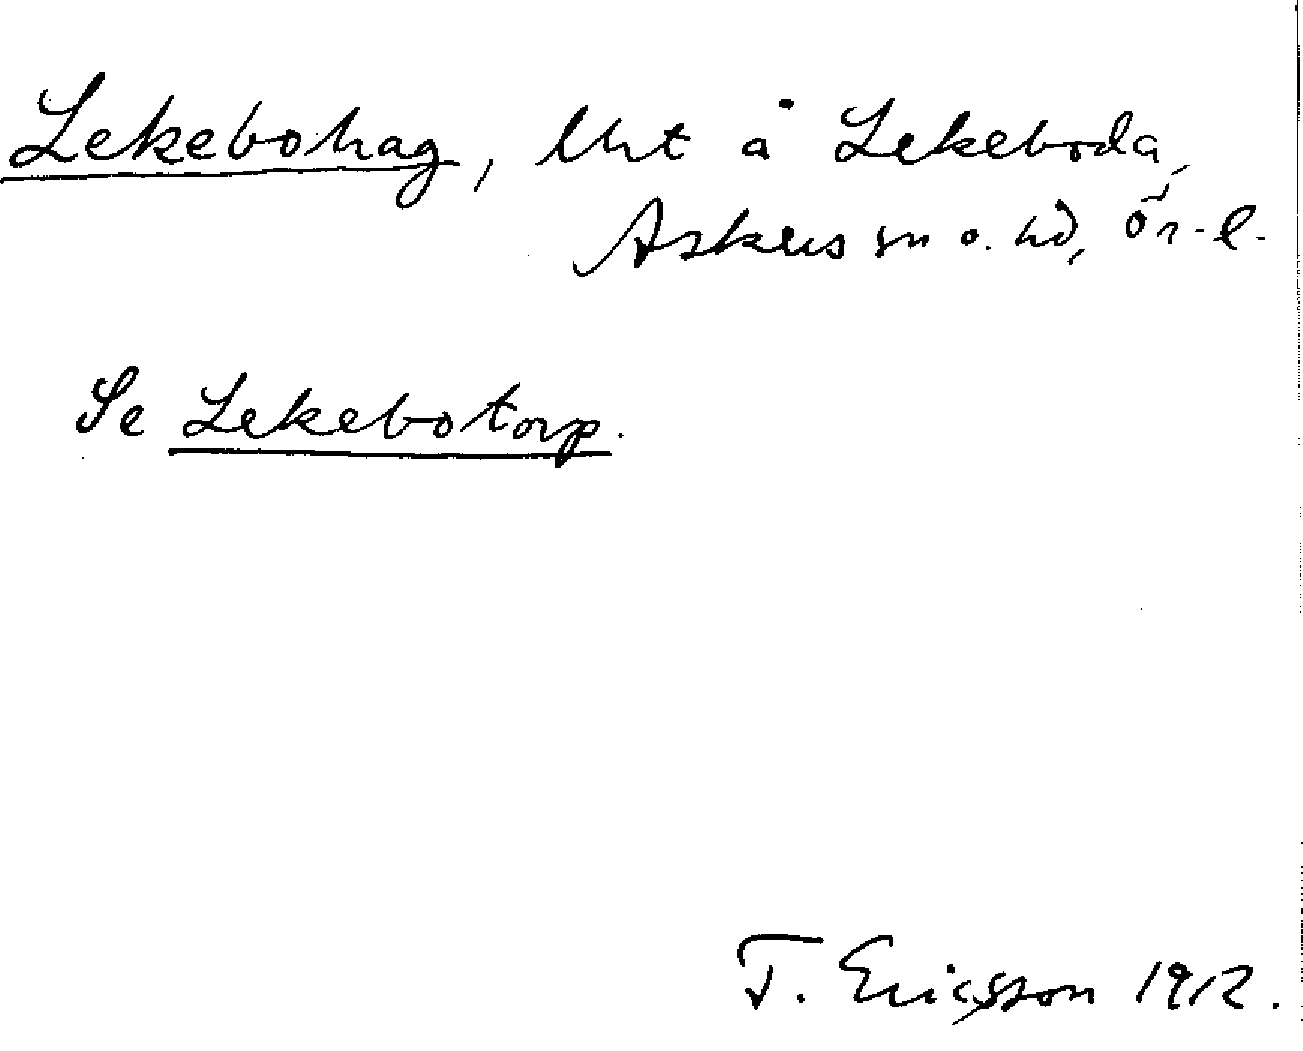 Lekebohag, lht å Lekeboda,
Askers sn o. hd, Ör. l.
Se Lekebotorp.
T. Ericsson 1912.